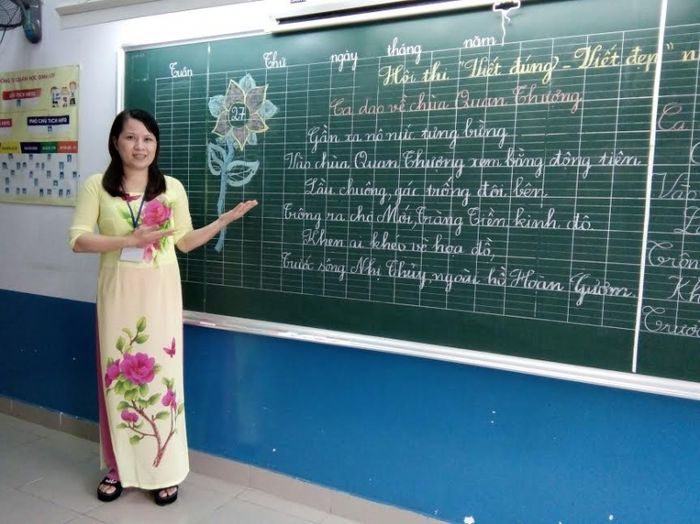 ỒNG TỰ QUẢN HỌC SINH LỚP
CHỦ TỊCH HĐTQ
PHÓ CHỦ TỊCH HĐTQ
Tuần Thứ ngày tháng năm
27
Hội thi "Viết đúng - Viết đẹp" n
Ca dao về chùa Quan Thượng
Gần xa nô nức tưng bừng
Vào chùa Quan Thượng xem bằng động tiên.
Lầu chuông, gác trống đôi bên
Trông ra chợ Mới, Tràng Tiền kinh đô
Khen ai khéo vẽ họa đồ,
Trước sông Nhị Thủy, ngoài hồ Hoàn Gươm.
Ca
Trôn
Kh
Trước